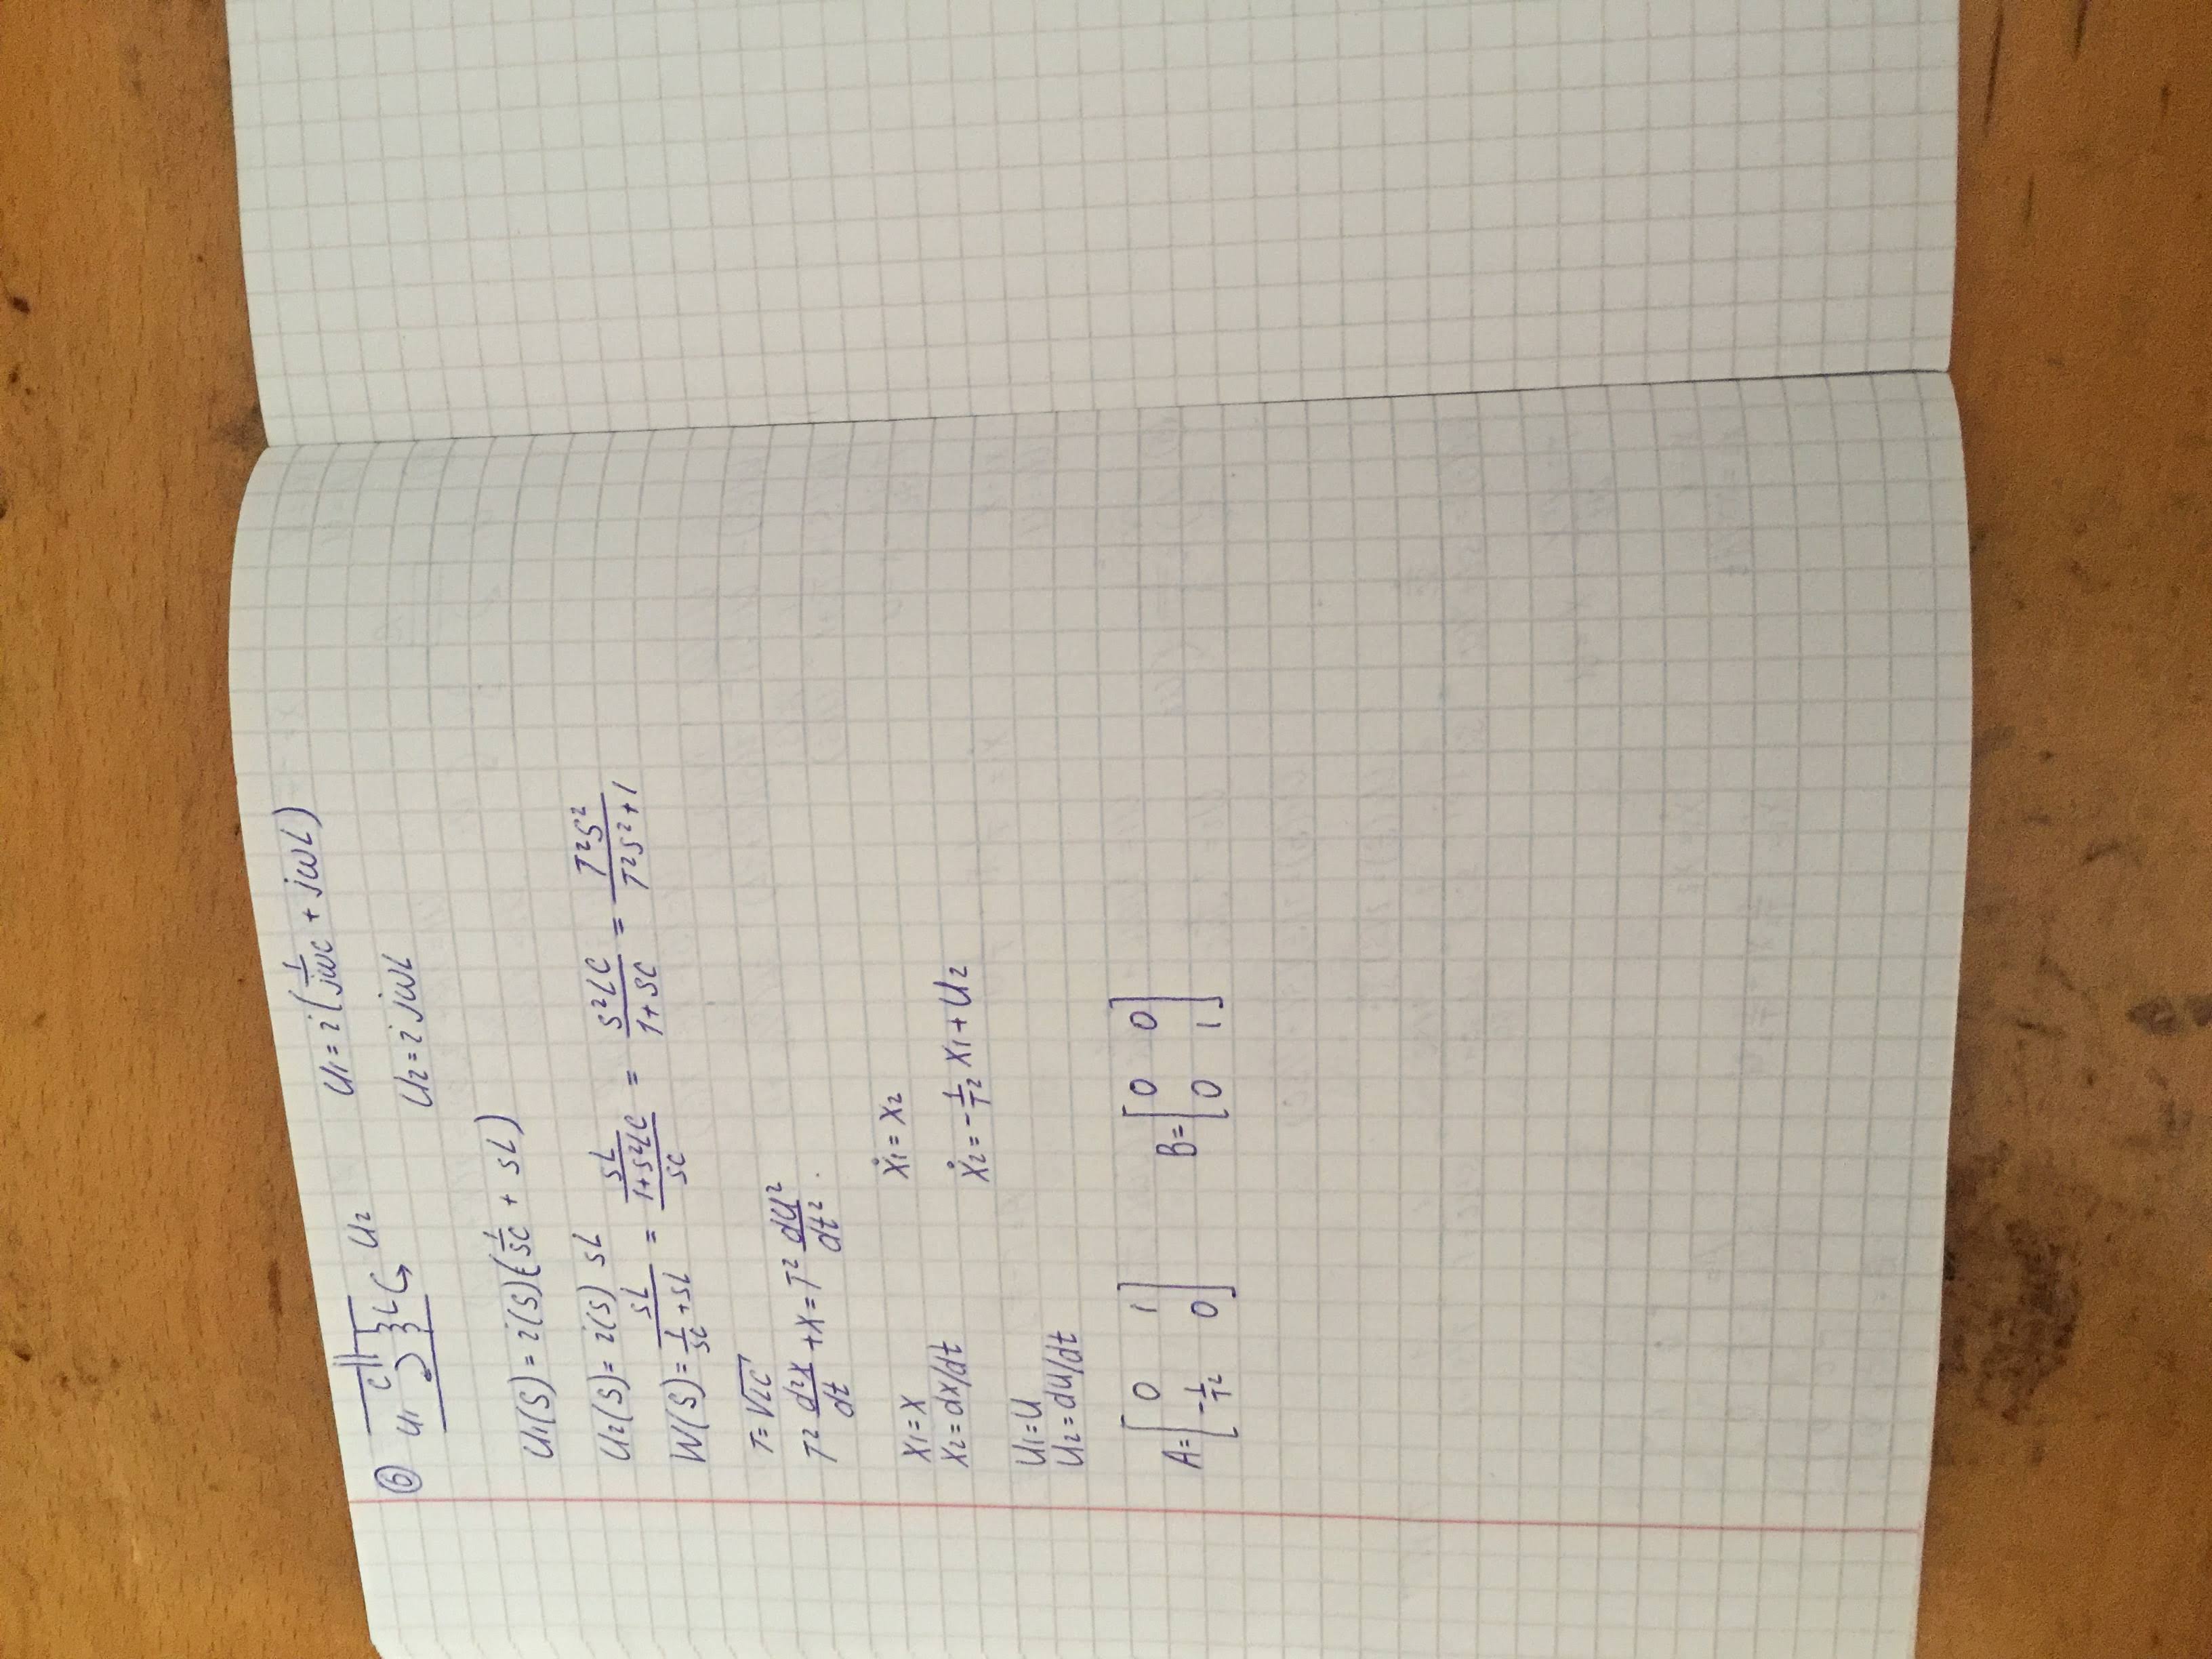 ⑥ U1 C L U2 U1 = i(1/jωC + jωL)
U2 = i jωL
U1(S) = i(S)(1/SC + SL)
U2(S) = i(S) SL
W(S) = SL/(1/SC + SL) = SL/((1+S²LC)/SC) = S²LC/(1+SC) = T²S²/(T²S²+1)
T = √LC
T² d²X/dt + X = T² dU²/dt².
X1 = X Ẋ1 = X2
X2 = dX/dt Ẋ2 = -1/T² X1 + U2
U1 = U
U2 = dU/dt
A = [0 1; -1/T² 0] B = [0 0; 0 1]